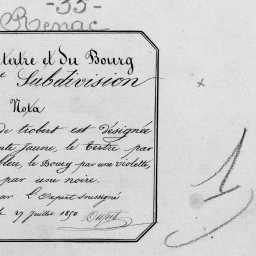 -33-
Renac
tertre et du Bourg
Subdivision
Noxa
de trobert est désignée
nte Jaune, le Tertre par
bleu, le Bourg par une violette,
par une noire.
par L'Expert soussigné
27 Juillet 1850
1